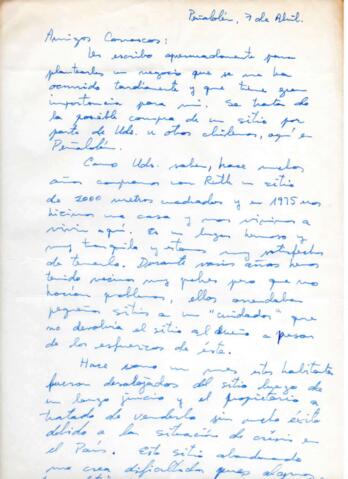 Peñalolén, 7 de Abril.
Amigos Carrascos:
Les escribo apresuradamente para
plantearles un negocio que se me ha
ocurrido tardíamente y que tiene gran
importancia para mí. Se trata de
la posible compra de un sitio por
parte de Uds. u otros chilenos, aquí en
Peñalolén.
Como Uds. saben, hace muchos
años compramos con Ruth un sitio
de 2000 metros cuadrados y en 1975 nos
hicimos una casa y nos vinimos a
vivir aquí. Es un lugar hermoso y
muy tranquilo y estamos muy satisfechos
de tenerlo. Durante varios años hemos
tenido vecinos muy pobres pero que no
hacían problemas, ellos arrendaban
pequeños sitios a un "cuidador" que
no devolvía el sitio al dueño a pesar
de los esfuerzos de éste.
Hace como un mes estos habitantes
fueron desalojados del sitio luego de
un largo juicio y el propietario a
tratado de venderlo sin mucho éxito
debido a la situación de crisis en
el País. Este sitio abandonado
me crea dificultades pues algunos